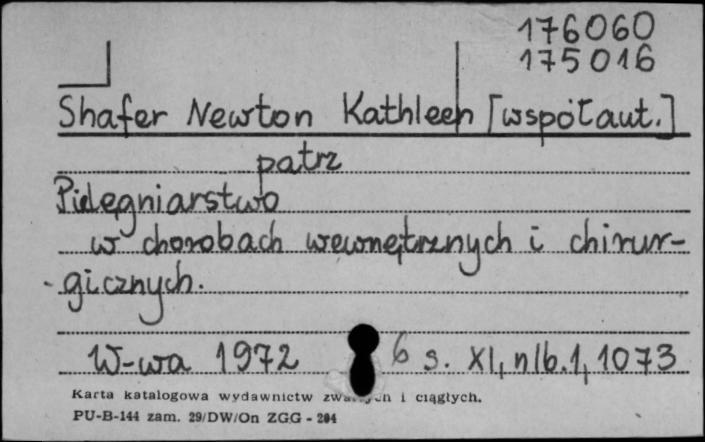 176060
175016
Shafer Newton Kathleen [współaut.]
patrz
Pielęgniarstwo
w chorobach wewnętrznych i chirur-
-gicznych.
W-wa 1972 6 s. XI, nlb. 1, 1073
Karta katalogowa wydawnictw i ciągłych.
PU-B-144 zam. 29/DW/On ZGG - 204